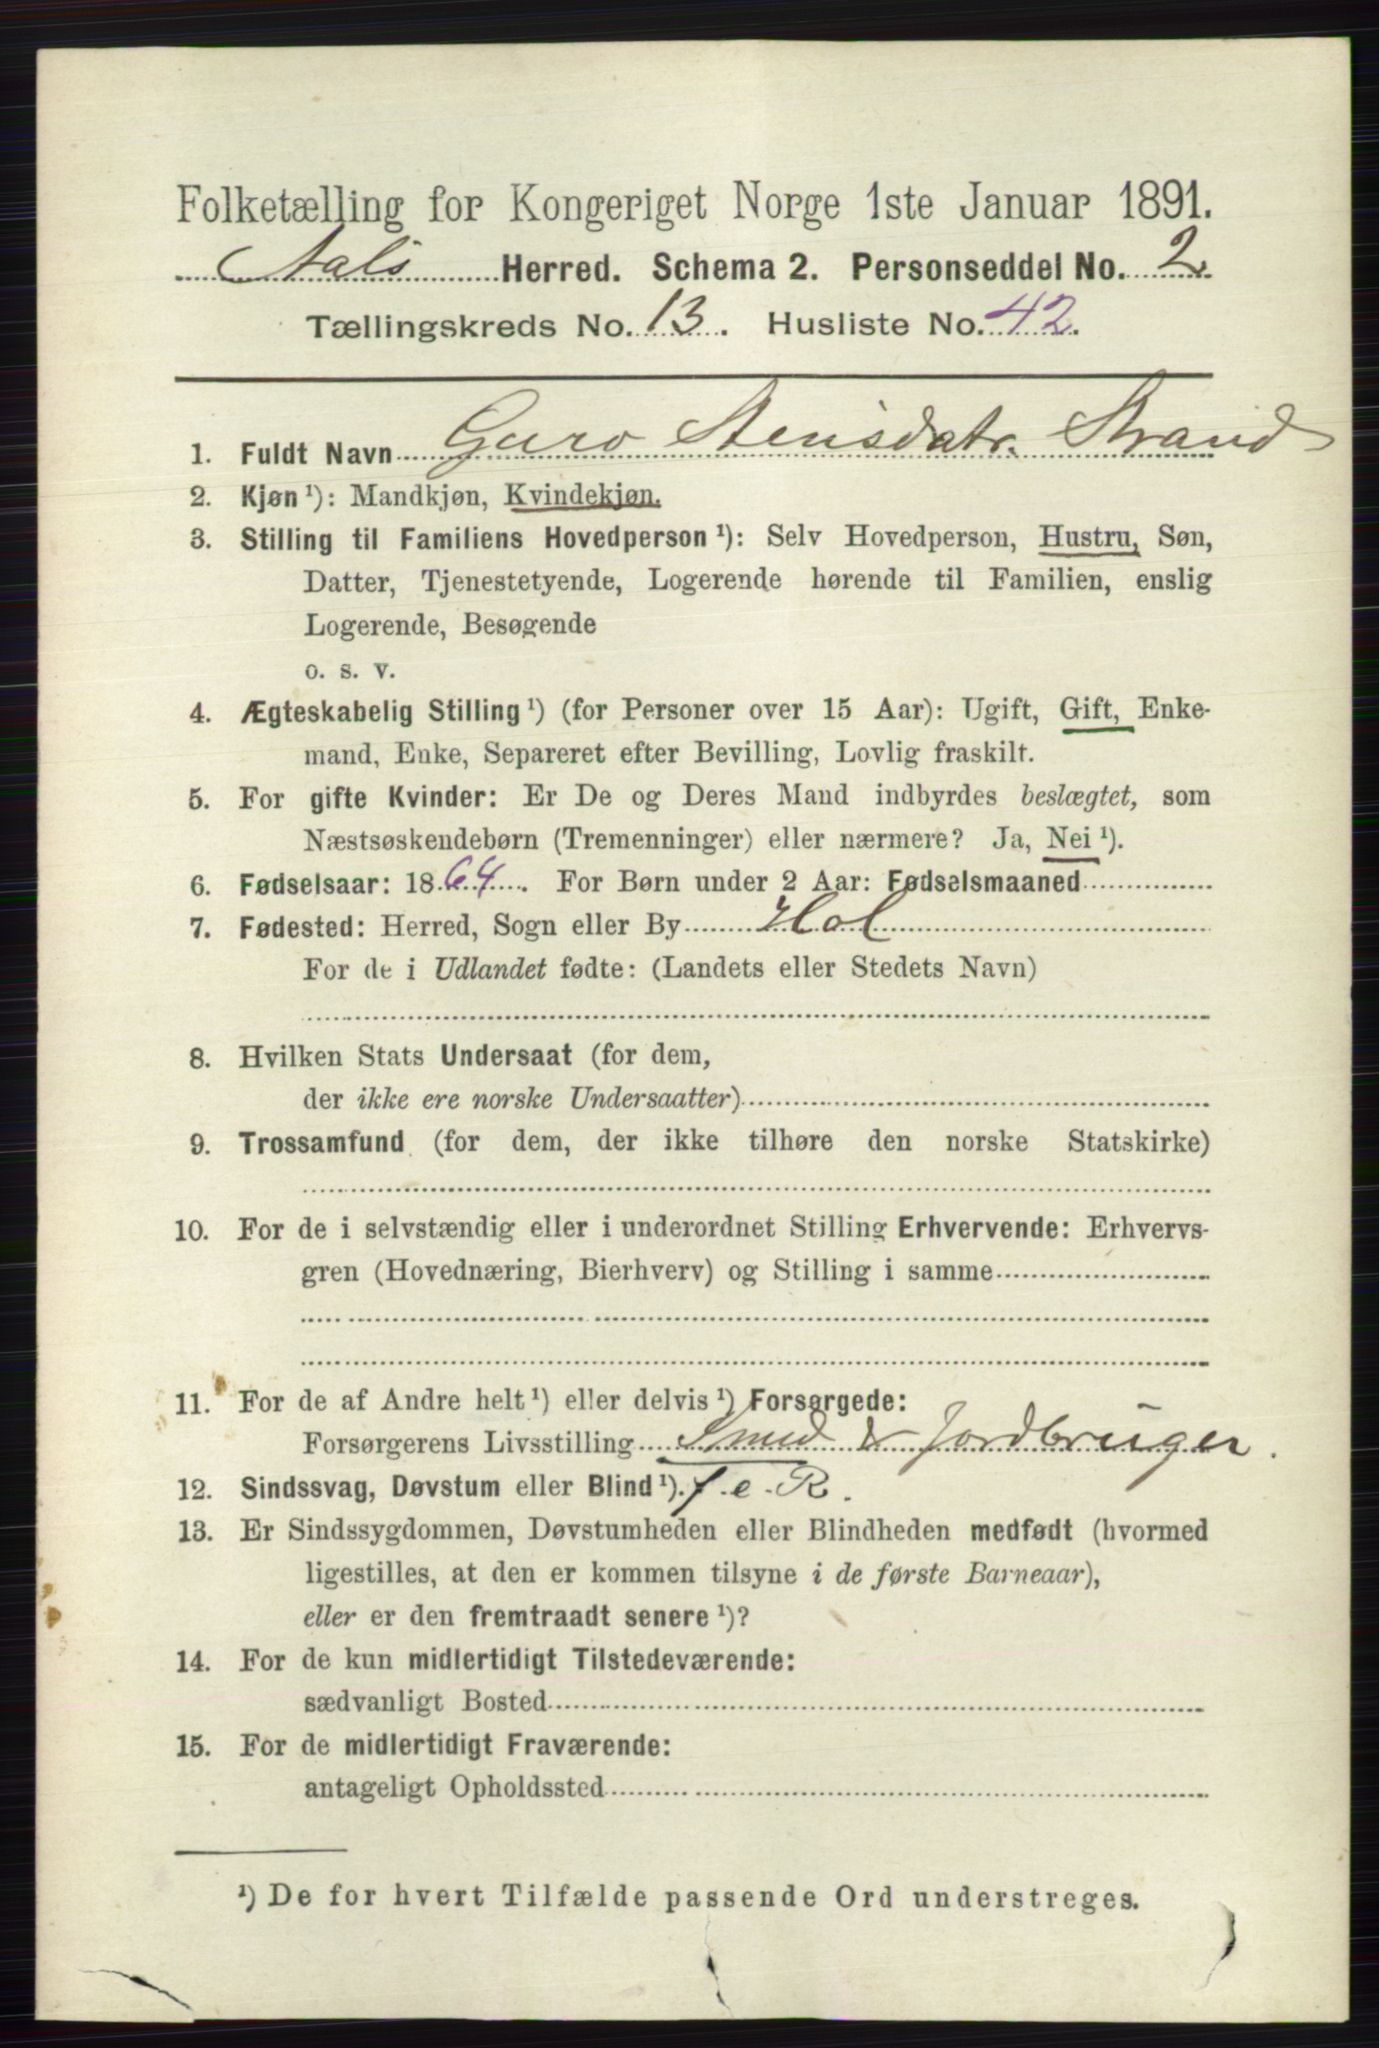 Folketælling for Kongeriget Norge 1ste Januar 1891.
Aals Herred. Schema 2. Personseddel No. 2
Tællingskreds No. 13. Husliste No. 42.
1. Fuldt Navn Guro Stensdatr. Strand
2. Kjøn ¹): Mandkjøn, Kvindekjøn.
3. Stilling til Familiens Hovedperson ¹): Selv Hovedperson, Hustru, Søn,
Datter, Tjenestetyende, Logerende hørende til Familien, enslig
Logerende, Besøgende
o. s. v.
4. Ægteskabelig Stilling ¹) (for Personer over 15 Aar): Ugift, Gift, Enke-
mand, Enke, Separeret efter Bevilling, Lovlig fraskilt.
5. For gifte Kvinder: Er De og Deres Mand indbyrdes beslægtet, som
Næstsøskendebørn (Tremenninger) eller nærmere? Ja, Nei ¹).
6. Fødselsaar: 1864. For Børn under 2 Aar: Fødselsmaaned
7. Fødested: Herred, Sogn eller By Hol
For de i Udlandet fødte: (Landets eller Stedets Navn)
8. Hvilken Stats Undersaat (for dem,
der ikke ere norske Undersaatter)
9. Trossamfund (for dem, der ikke tilhøre den norske Statskirke)
10. For de i selvstændig eller i underordnet Stilling Erhvervende: Erhvervs-
gren (Hovednæring, Bierhverv) og Stilling i samme
11. For de af Andre helt ¹) eller delvis ¹) Forsørgede:
Forsørgerens Livsstilling Smed & Jordbruger.
12. Sindssvag, Døvstum eller Blind ¹). f. e. R.
13. Er Sindssygdommen, Døvstumheden eller Blindheden medfødt (hvormed
ligestilles, at den er kommen tilsyne i de første Barneaar),
eller er den fremtraadt senere ¹)?
14. For de kun midlertidigt Tilstedeværende:
sædvanligt Bosted
15. For de midlertidigt Fraværende:
antageligt Opholdssted
¹) De for hvert Tilfælde passende Ord understreges.